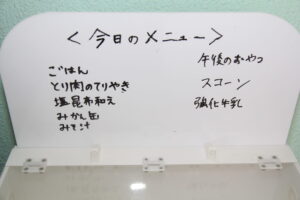 ＜今日のメニュー＞
ごはん
とり肉のてりやき
塩昆布和え
みかん缶
みそ汁
午後のおやつ
スコーン
強化牛乳